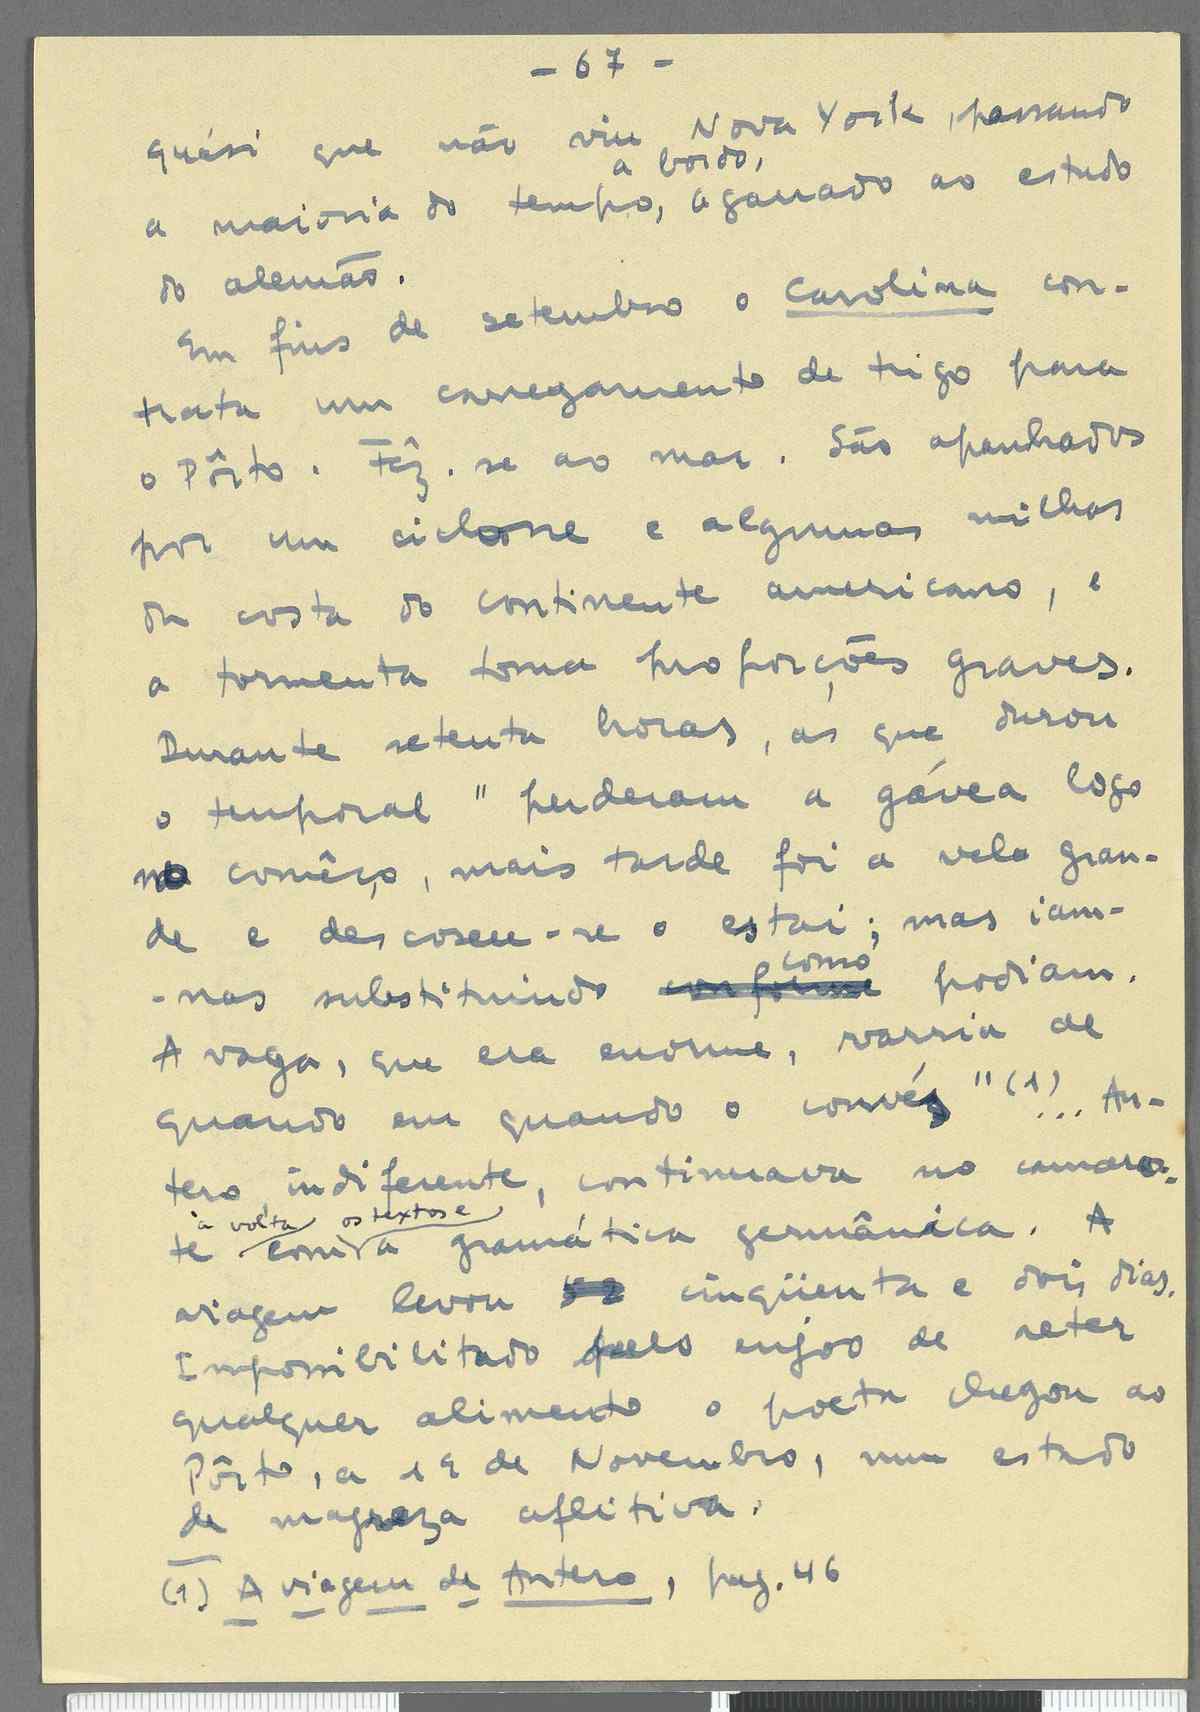 - 67 -
quási que não viu Nova York, passando
a bordo,
a maioria do tempo, agarrado ao estudo
do alemão.
Em fins de setembro o Carolina con-
trata um carregamento de trigo para
o Pôrto. Fêz-se ao mar. São apanhados
por um ciclone e algumas milhas
da costa do continente americano, e
a tormenta toma proporções graves.
Durante setenta horas, as que durou
o temporal " perderam a gávea logo
no comêço, mais tarde foi a vela gran-
de e descoseu-se o estai; mas iam-
como
-nas substituindo conforme podiam.
A vaga, que era enorme, varria de
quando em quando o convés" (1)... An-
tero indiferente, continuava no camaro-
à volta os textos e
te com a gramática germânica. A
viagem levou 52 cinqüenta e dois dias.
Impossibilitado pelo enjoo de reter
qualquer alimento o poeta chegou ao
Pôrto, a 19 de Novembro, num estado
de magreza aflitiva.
(1) A viagem de Antero, pag. 46